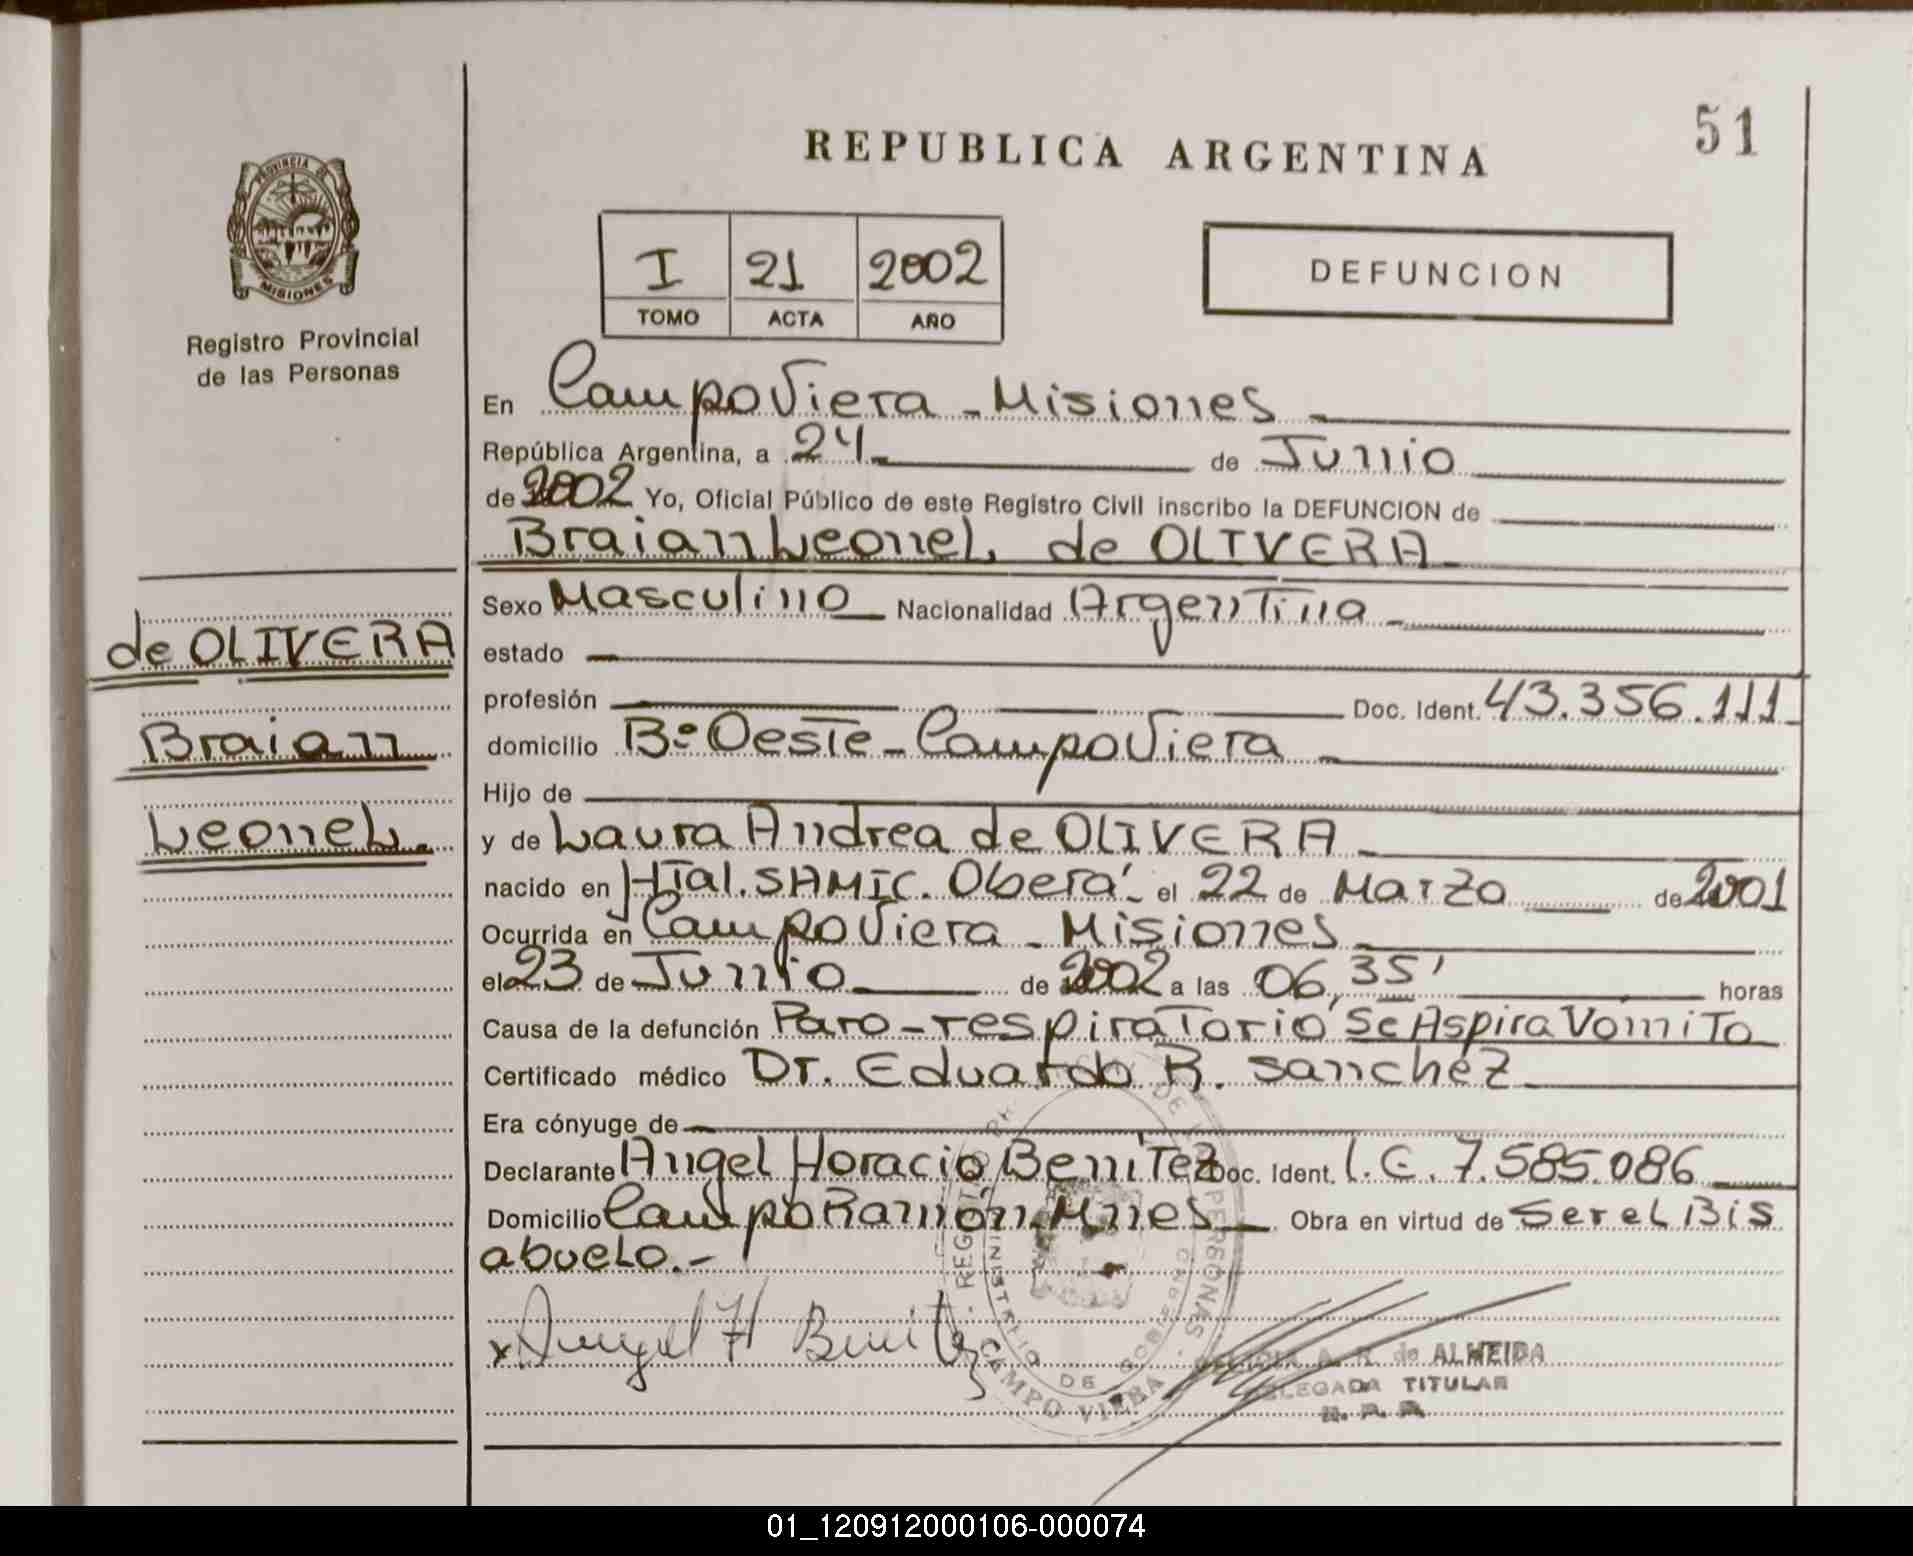 51
REPUBLICA ARGENTINA
PROVINCIA DE
MISIONES
Registro Provincial
de las Personas
I 21 2002
TOMO ACTA AÑO
DEFUNCION
En Campo Viera - Misiones
República Argentina, a 24 de Junio
de 2002 Yo, Oficial Público de este Registro Civil inscribo la DEFUNCION de
Braian Leonel de OLIVERA
Sexo Masculino Nacionalidad Argentina
estado
profesión Doc. Ident. 43.356.111
domicilio Bº Oeste - Campo Viera
Hijo de
y de Laura Andrea de OLIVERA
nacido en Htal. SAMIC. Oberá - el 22 de Marzo de 2001
Ocurrida en Campo Viera - Misiones
el 23 de Junio de 2002 a las 06,35' horas
Causa de la defunción Paro-respiratorio Se Aspira Vomito
Certificado médico Dr. Eduardo R. Sanchez
Era cónyuge de
Declarante Angel Horacio Benitez Doc. Ident. L.E. 7.585.086
Domicilio Campo Ramón Mnes Obra en virtud de Ser el Bis
abuelo.-
x Angel H Benitez
de OLIVERA
Braian
Leonel.
MINISTERIO DE GOBIERNO
CAMPO VIERA
A. R. de ALMEIDA
DELEGADA TITULAR
R. P. P.
01_120912000106-000074